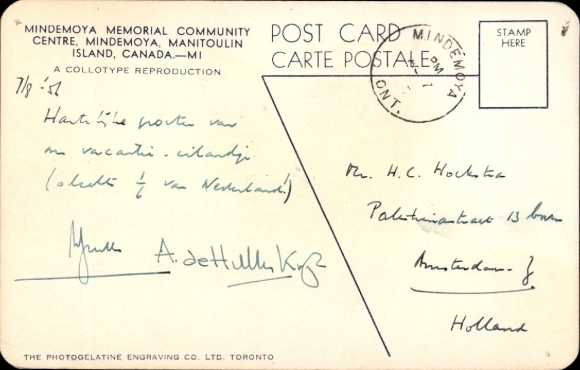 MINDEMOYA MEMORIAL COMMUNITY
CENTRE, MINDEMOYA, MANITOULIN
ISLAND, CANADA.—MI
A COLLOTYPE REPRODUCTION
POST CARD
CARTE POSTALE
STAMP
HERE
MINDEMOYA
PM
ONT.
Hartelijke groeten van
vacantie-eilandje
(slechts 1/6 van Nederland!)
A. de
Mr. H.C. Hoekstra
Palestrinastraat 13 boven
Amsterdam-Z
Holland
THE PHOTOGELATINE ENGRAVING CO. LTD. TORONTO